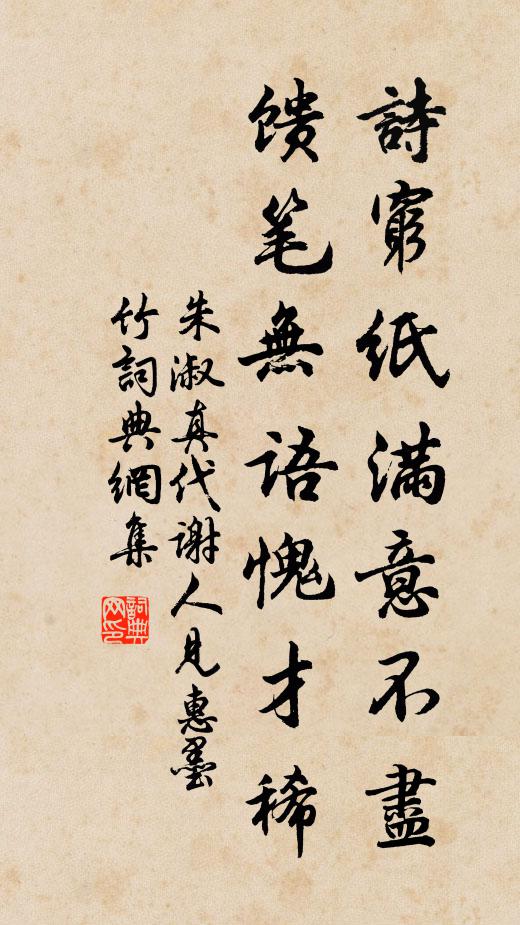 詩窮紙滿意不盡
馈笔無語愧才稀
朱淑真代谢人见惠墨
竹詞典網集
詞典网印